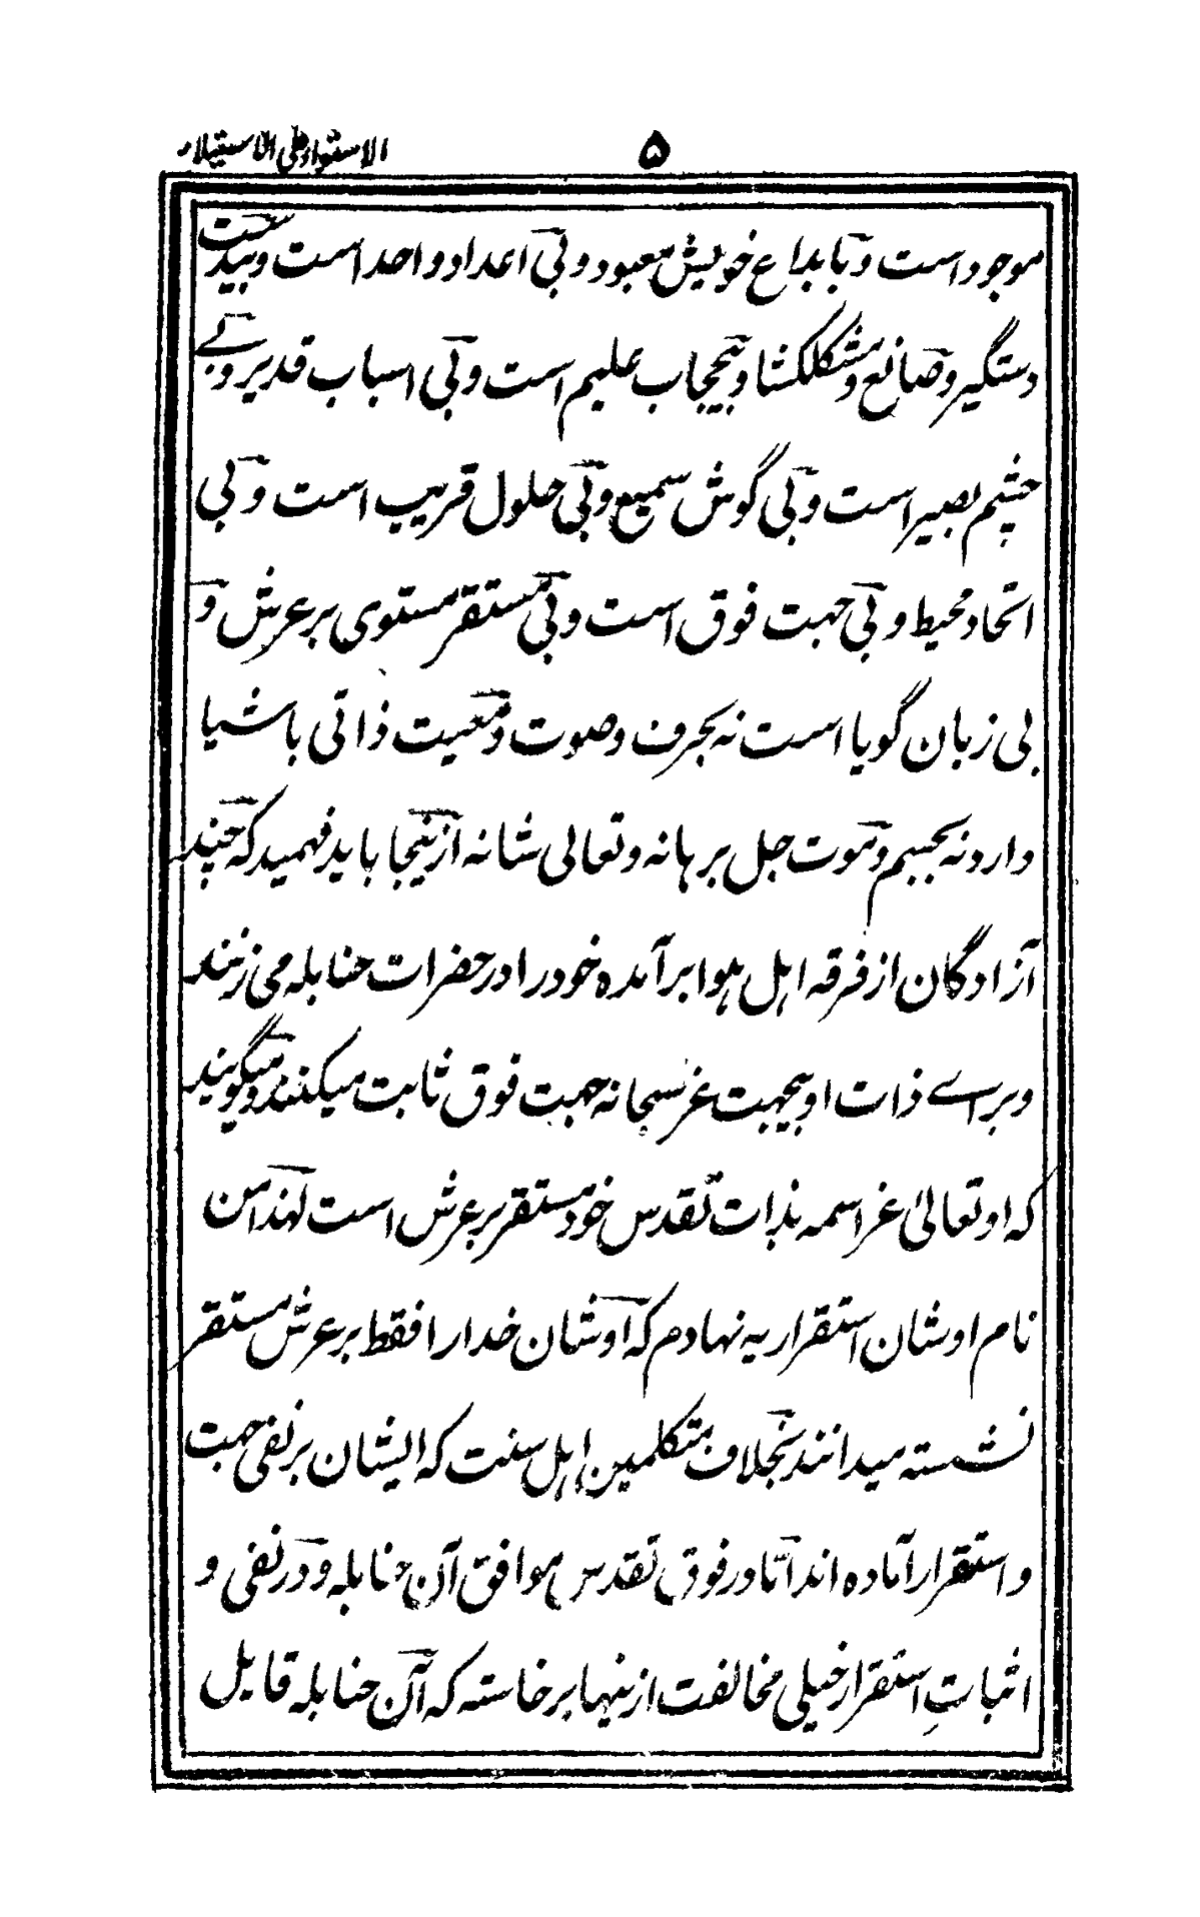 ۵
الاستواء علی الاستیلاء
موجود است و با بداع خویش معبود و بی اعداد واحد است و بیدست
دستگیر و صانع و مشکلکشا و بیحجاب علیم است و بی اسباب قدیر و بے
چشم بصیر است و بی گوش سمیع و بی حلول قریب است و بی
اتحاد محیط و بی جهت فوق است و بی مستقر مستوی بر عرش و
بی زبان گویا است نه بحرف و صوت و معیت ذاتی باشیا
دارد نه بجسم و موت جل برهانه و تعالی شانه ازینجا باید فهمید که چند
آزادگان از فرقه اهل هوا برآمده خود را در حضرات حنابله می زنند
و براے ذات او بیجهت عز سبحانه جهت فوق ثابت میکنند و میگویند
که او تعالیٰ عز اسمه بذات تقدس خود مستقر بر عرش است لهذا من
نام اوشان استقراریه نهادم که اوشان خدا را فقط بر عرش مستقر
نشسته میدانند بخلاف متکلمین اهل سنت که ایشان بر نفی جهت
و استقرار آماده اند اما در فوق تقدس موافق آن حنابله و در نفی و
اثباتِ استقرار خیلی مخالفت ازینها برخاسته که آن حنابله قایل